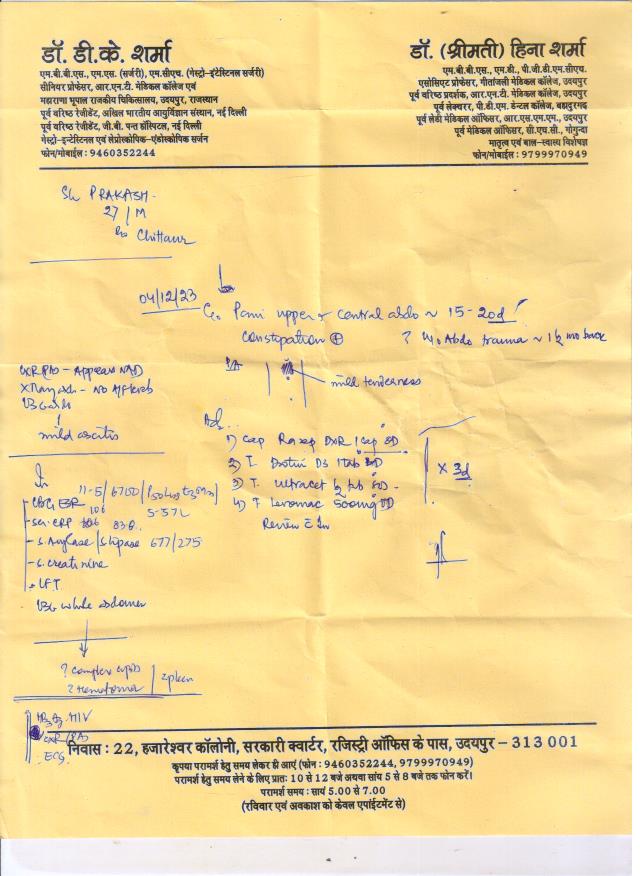 डॉ. डी.के. शर्मा
एम.बी.बी.एस., एम.एस. (सर्जरी), एम.सीएच. (गेस्ट्रो-इंटेस्टिनल सर्जरी)
सीनियर प्रोफेसर, आर.एन.टी. मेडिकल कॉलेज एवं
महाराणा भूपाल राजकीय चिकित्सालय, उदयपुर, राजस्थान
पूर्व वरिष्ठ रेजीडेंट, अखिल भारतीय आयुर्विज्ञान संस्थान, नई दिल्ली
पूर्व वरिष्ठ रेजीडेंट, जी.बी. पन्त हॉस्पिटल, नई दिल्ली
गेस्ट्रो-इन्टेस्टिनल एवं लेप्रोस्कोपिक-एंडोस्कोपिक सर्जन
फोन/मोबाईल : 9460352244
डॉ. (श्रीमती) हिना शर्मा
एम.बी.बी.एस., एम.डी., पी.जी.डी.एम.सीएच.
एसोसिएट प्रोफेसर, गीतांजली मेडिकल कॉलेज, उदयपुर
पूर्व वरिष्ठ प्रदर्शक, आर.एन.टी. मेडिकल कॉलेज, उदयपुर
पूर्व लेक्चरर, पी.डी.एम. डेन्टल कॉलेज, बहादुरगढ़
पूर्व लेडी मेडिकल ऑफिसर, आर.एस.एम.एम., उदयपुर
पूर्व मेडिकल ऑफिसर, सी.एच.सी., गोगुन्दा
मातृत्व एवं बाल-स्वास्थ्य विशेषज्ञ
फोन/मोबाईल : 9799970949
Sh PRAKASH
27 / M
R/o Chittaur
04/12/23
C/o Pain upper & central abdo ~ 15-20d
Constipation ⊕ ? H/o Abdo trauma ~ 1½ mo back
P/A
mild tenderness
CXR (PA) - Appears NAD
Xray Abd - No A/F levels
USG abdo
mild ascitis
Adv.
1) Cap Razep DXR 1 cap BD
2) T. D3 1 tab
3) T. Ultracet ½ tab
4) T Levomac 500mg OD
Review c Inv
X 3d
Inv
CBC ESR 11.5 / 6700 /
106
5.57L
- ser. CRP 106
- S. Amylase / Slipase 677/275
- S. Creatinine
- LFT
USG whole abdomen
? complex cyst
? Hematoma
spleen
HBsAg, HIV
CXR (PA)
ECG
निवास : 22, हजारेश्वर कॉलोनी, सरकारी क्वार्टर, रजिस्ट्री ऑफिस के पास, उदयपुर – 313 001
कृपया परामर्श हेतु समय लेकर ही आएं (फोन : 9460352244, 9799970949)
परामर्श हेतु समय लेने के लिए प्रातः 10 से 12 बजे अथवा सांय 5 से 8 बजे तक फोन करें।
परामर्श समय : सायं 5.00 से 7.00
(रविवार एवं अवकाश को केवल एपॉईंटमेंट से)